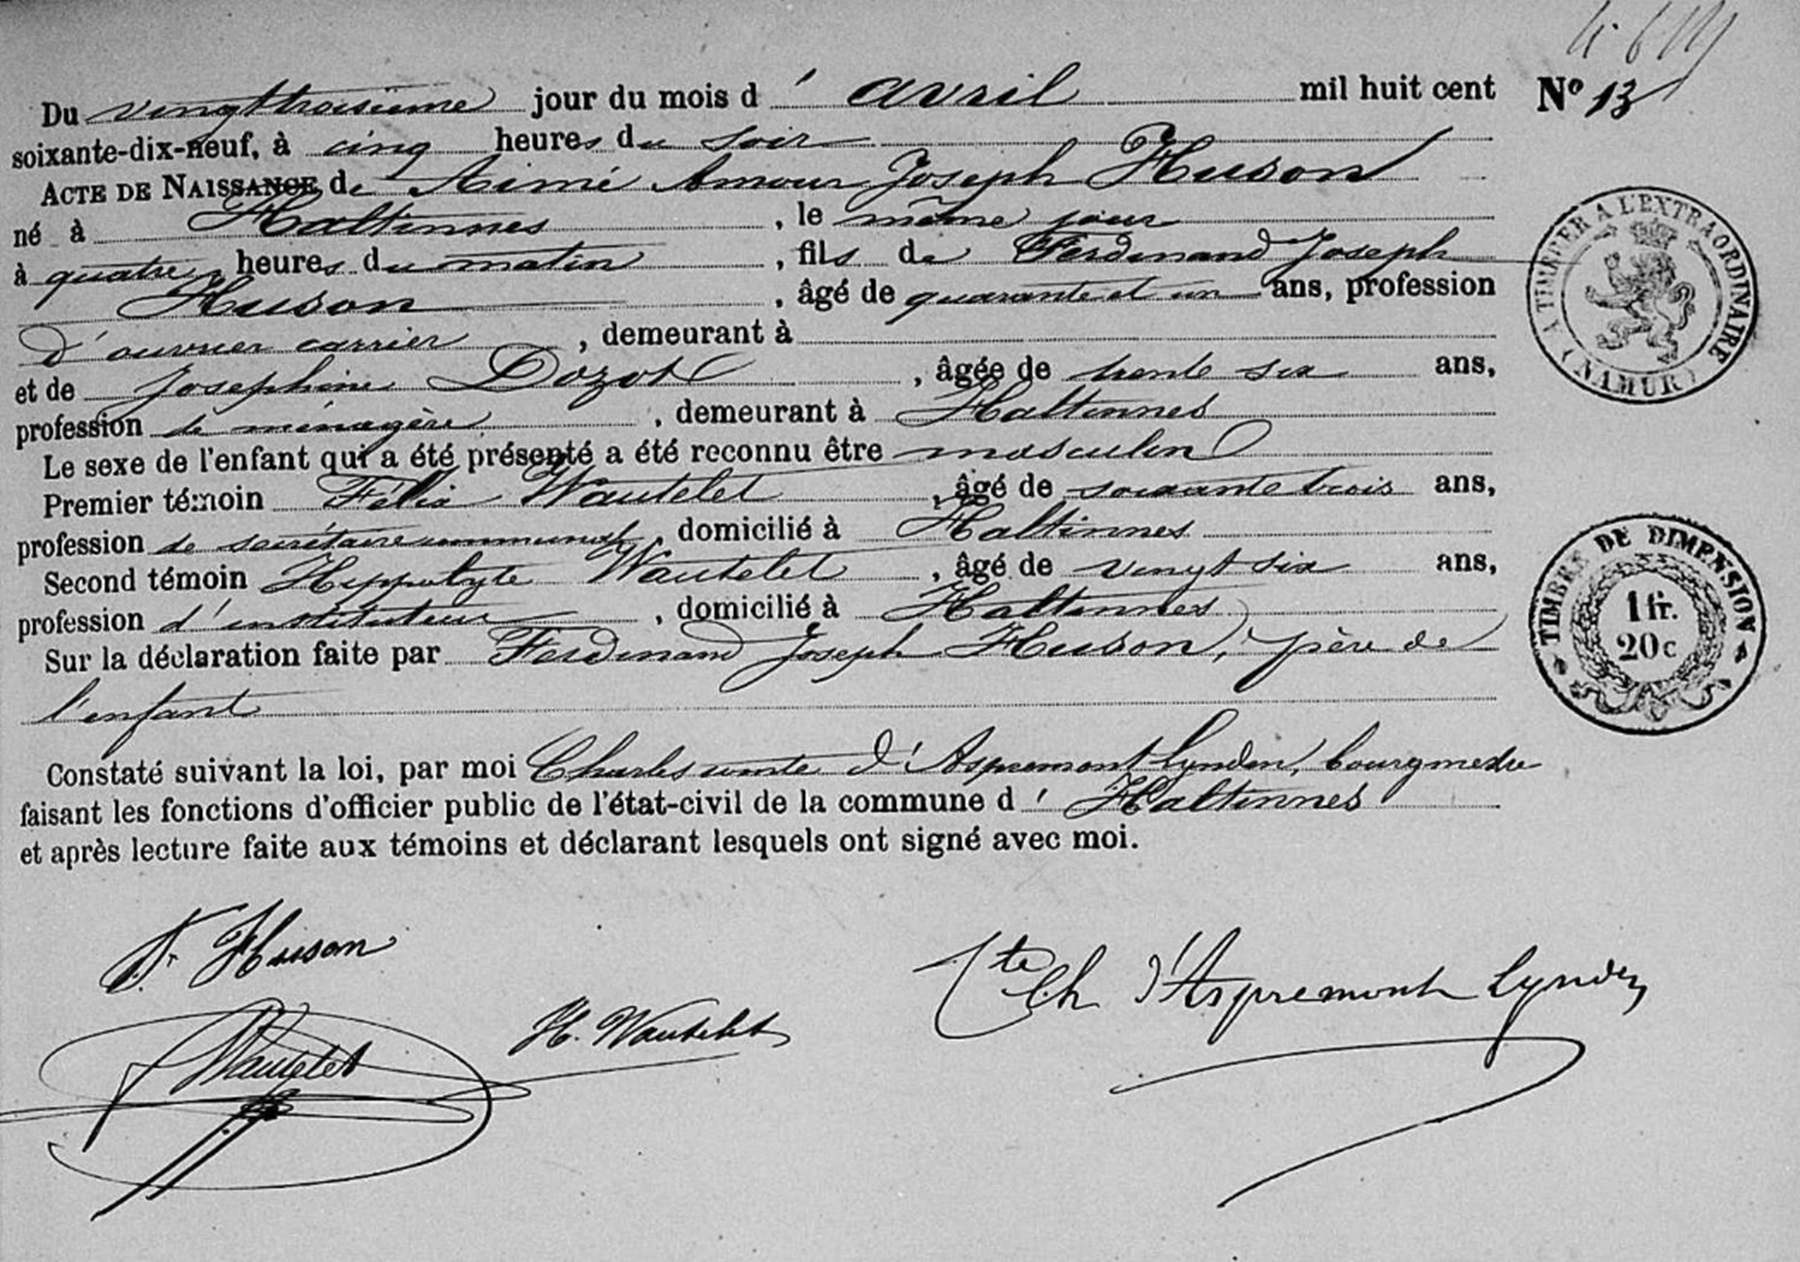 Du vingttroisième jour du mois d'avril mil huit cent
Nº 13
soixante-dix-neuf, à cinq heures du soir
ACTE DE NAISSANCE de Aimé Amour Joseph Huson
né à Haltinnes, le même jour
à quatre heures du matin, fils de Ferdinand Joseph
Huson, âgé de quarante et un ans, profession
d'ouvrier carrier, demeurant à
et de Josephine Dozot, âgée de trente six ans,
profession de ménagère, demeurant à Haltinnes
Le sexe de l'enfant qui a été présenté a été reconnu être masculin
Premier témoin Félix Wautelet, âgé de soixante trois ans,
profession de secrétaire communal, domicilié à Haltinnes
Second témoin Hippolyte Wautelet, âgé de vingt six ans,
profession d'instituteur, domicilié à Haltinnes
Sur la déclaration faite par Ferdinand Joseph Huson, père de
l'enfant
Constaté suivant la loi, par moi Charles comte d'Aspremont Lynden, bourgmestre
faisant les fonctions d'officier public de l'état-civil de la commune d'Haltinnes
et après lecture faite aux témoins et déclarant lesquels ont signé avec moi.
A TIMBRER A L'EXTRAORDINAIRE
(NAMUR)
TIMBRE DE DIMENSION
1 fr.
20 c
Huson
Wautelet
H. Wautelet
Cte Ch d'Aspremont Lynden